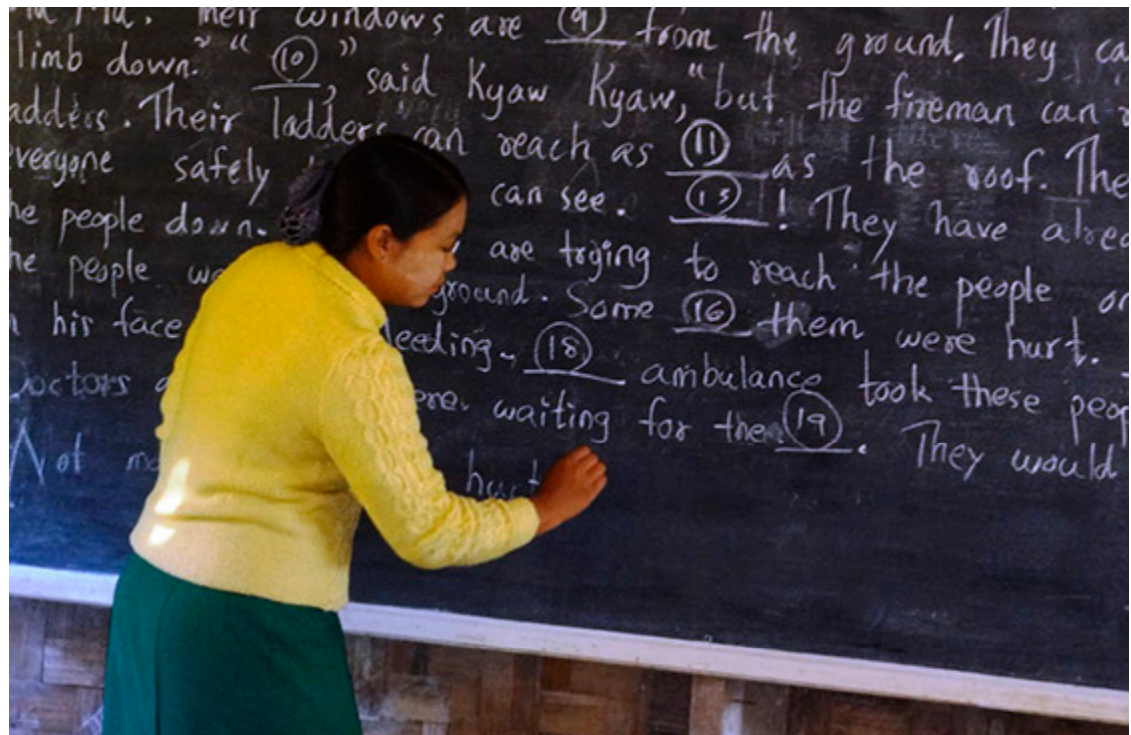 Ma Ma. Their windows are (9) from the ground. They ca
limb down." "(10)", said Kyaw Kyaw, "but the fireman can
adders. Their ladders can reach as (11) as the roof. The
veryone safely can see. (15)! They have alrea
he people down. are trying to reach the people on
he people we ground. Some (16) them were hurt.
n his face leeding. (18) ambulance took these peop
Doctors a ere waiting for the (19). They would
Not m hurt